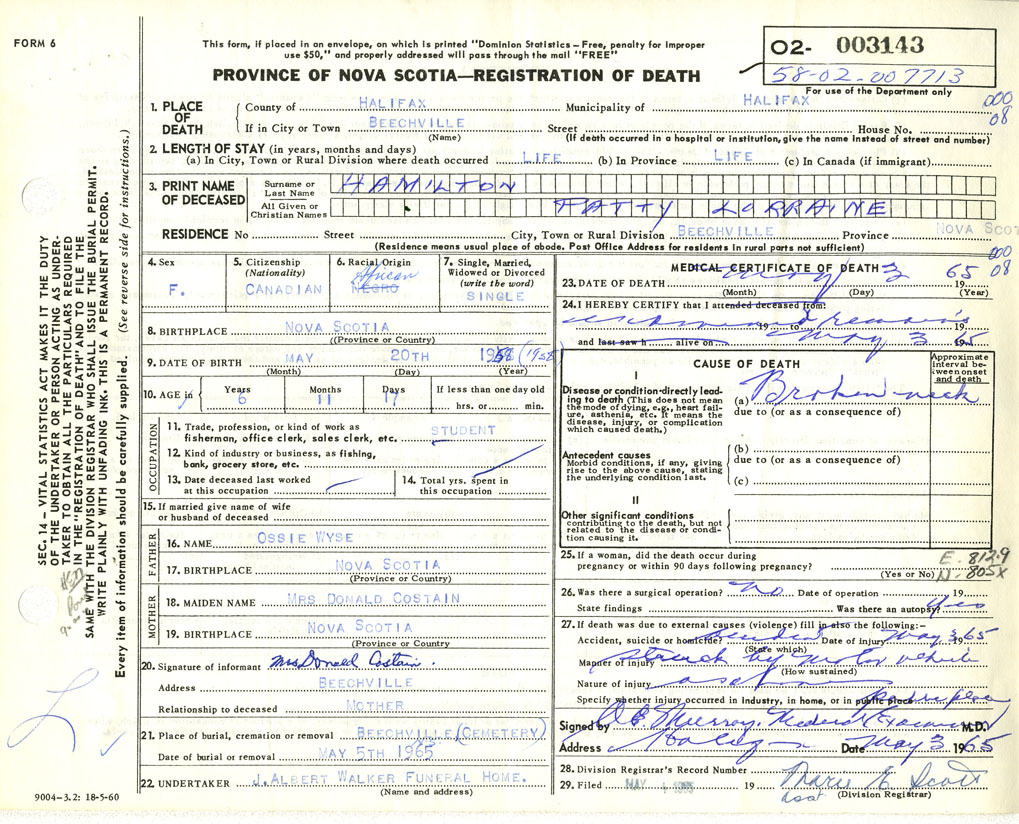 FORM 6
This form, if placed in an envelope, on which is printed "Dominion Statistics – Free, penalty for improper
use $50," and properly addressed will pass through the mail "FREE"
PROVINCE OF NOVA SCOTIA—REGISTRATION OF DEATH
02- 003143
58-02-007713
For use of the Department only
000
08
1. PLACE OF DEATH
County of HALIFAX Municipality of HALIFAX
If in City or Town BEECHVILLE Street House No.
(Name) (If death occurred in a hospital or institution, give the name instead of street and number)
2. LENGTH OF STAY (in years, months and days)
(a) In City, Town or Rural Division where death occurred LIFE (b) In Province LIFE (c) In Canada (if immigrant)
3. PRINT NAME OF DECEASED
Surname or Last Name HAMILTON
All Given or Christian Names PATTY LORRAINE
RESIDENCE No Street City, Town or Rural Division BEECHVILLE Province NOVA SCOT
(Residence means usual place of abode. Post Office Address for residents in rural parts not sufficient)
000
08
4. Sex
F.
5. Citizenship
(Nationality)
CANADIAN
6. Racial Origin
African
NEGRO
7. Single, Married,
Widowed or Divorced
(write the word)
SINGLE
8. BIRTHPLACE NOVA SCOTIA
(Province or Country)
9. DATE OF BIRTH MAY 20TH 1958 (1958)
(Month) (Day) (Year)
10. AGE in Years 6 Months 11 Days 17 If less than one day old
hrs. or min.
OCCUPATION
11. Trade, profession, or kind of work as
fisherman, office clerk, sales clerk, etc. STUDENT
12. Kind of industry or business, as fishing,
bank, grocery store, etc.
13. Date deceased last worked
at this occupation
14. Total yrs. spent in
this occupation
15. If married give name of wife
or husband of deceased
FATHER
16. NAME OSSIE WYSE
17. BIRTHPLACE NOVA SCOTIA
(Province or Country)
MOTHER
18. MAIDEN NAME MRS DONALD COSTAIN
19. BIRTHPLACE NOVA SCOTIA
(Province or Country)
20. Signature of informant Mrs Donald Costain.
Address BEECHVILLE
Relationship to deceased MOTHER
21. Place of burial, cremation or removal BEECHVILLE (CEMETERY)
Date of burial or removal MAY 5TH 1965
22. UNDERTAKER J. ALBERT WALKER FUNERAL HOME.
(Name and address)
MEDICAL CERTIFICATE OF DEATH
23. DATE OF DEATH May 3 1965
(Month) (Day) (Year)
24. I HEREBY CERTIFY that I attended deceased from:
examined remains
19 to 19
and last saw h alive on May 3 1965
CAUSE OF DEATH
Approximate interval between onset and death
I
Disease or condition directly leading
to death (This does not mean
the mode of dying, e.g., heart failure,
asthenia, etc. It means the
disease, injury, or complication
which caused death.)
(a) Broken neck
due to (or as a consequence of)
Antecedent causes
Morbid conditions, if any, giving
rise to the above cause, stating
the underlying condition last.
(b)
due to (or as a consequence of)
(c)
II
Other significant conditions
contributing to the death, but not
related to the disease or condition
causing it.
25. If a woman, did the death occur during
pregnancy or within 90 days following pregnancy?
(Yes or No)
E. 812.9
N. 805X
26. Was there a surgical operation? No Date of operation 19
State findings Was there an autopsy? Yes
27. If death was due to external causes (violence) fill in also the following:-
Accident, suicide or homicide? Date of injury May 3 1965
(State which)
Manner of injury struck by motor vehicle
(How sustained)
Nature of injury as above
Specify whether injury occurred in industry, in home, or in public place public place
Signed by Murray, Medical Examiner M.D.
Address Halifax Date May 3 1965
28. Division Registrar's Record Number
29. Filed MAY 4 1965 19 Marie E Scott
Asst (Division Registrar)
SEC. 14 – VITAL STATISTICS ACT MAKES IT THE DUTY
OF THE UNDERTAKER OR PERSON ACTING AS UNDER-
TAKER TO OBTAIN ALL THE PARTICULARS REQUIRED
IN THE "REGISTRATION OF DEATH" AND TO FILE THE
SAME WITH THE DIVISION REGISTRAR WHO SHALL ISSUE THE BURIAL PERMIT.
WRITE PLAINLY WITH UNFADING INK. THIS IS A PERMANENT RECORD.
Every item of information should be carefully supplied. (See reverse side for instructions.)
9004-3.2: 18-5-60